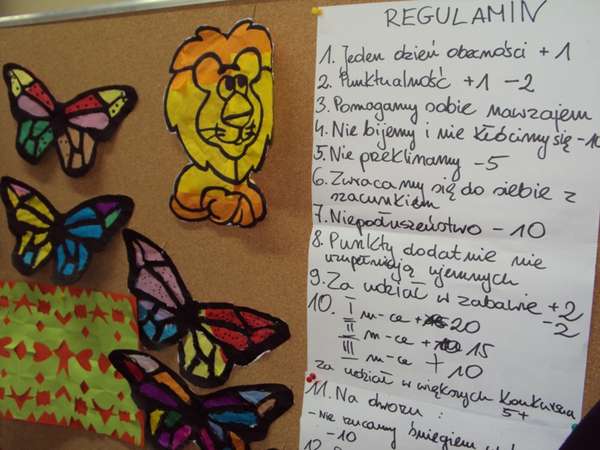 REGULAMIN
1. Jeden dzień obecności +1
2. Punktualność +1 -2
3. Pomagamy sobie nawzajem
4. Nie bijemy i nie kłócimy się -10
5. Nie przeklinamy -5
6. Zwracamy się do siebie z
szacunkiem
7. Nieposłuszeństwo - 10
8. Punkty dodatnie nie
uzupełniają ujemnych
9. Za udział w zabawie +2
-2
10. I m-ce + 20
II m-ce + 15
III m-ce + 10
za udział w większych konkursach
5+
11. Na dworzu :
- nie rzucamy śniegiem
- 10
12.